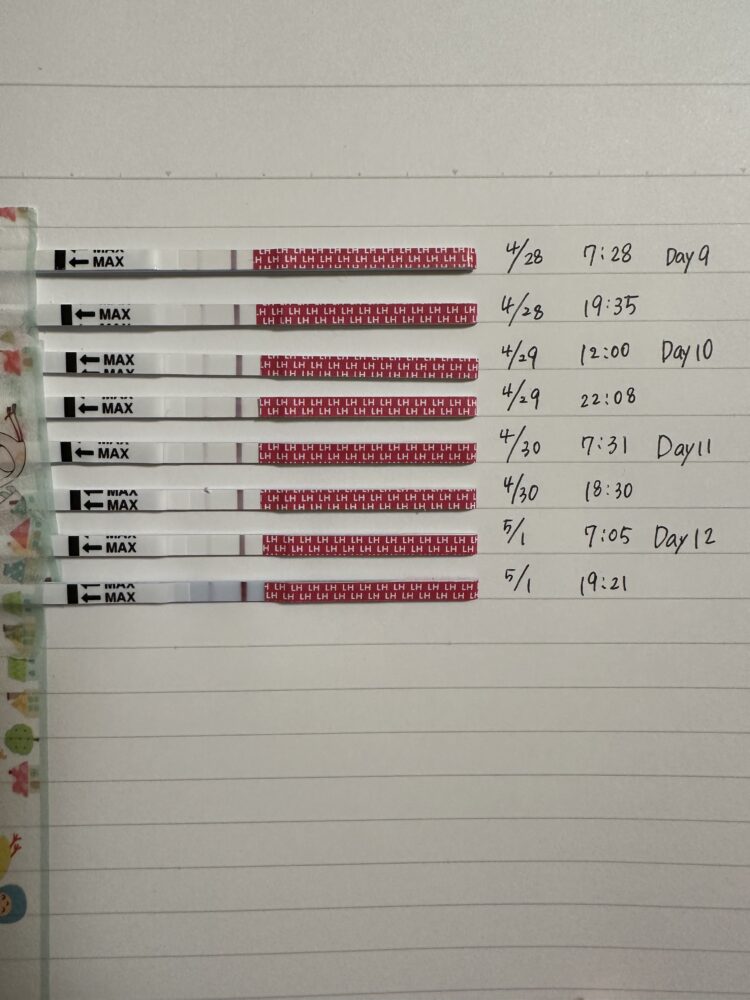 MAX 4/28 7:28 Day 9
MAX 4/28 19:35
MAX 4/29 12:00 Day 10
MAX 4/29 22:08
MAX 4/30 7:31 Day 11
MAX 4/30 18:30
MAX 5/1 7:05 Day 12
MAX 5/1 19:21